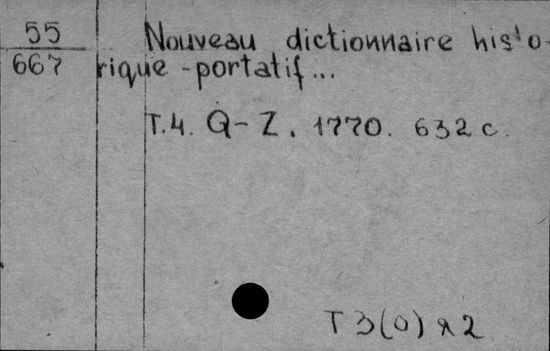 55
667
Nouveau dictionnaire histo-
rique-portatif...
T.4. Q-Z. 1770. 632 с.
Т 3(0) я2